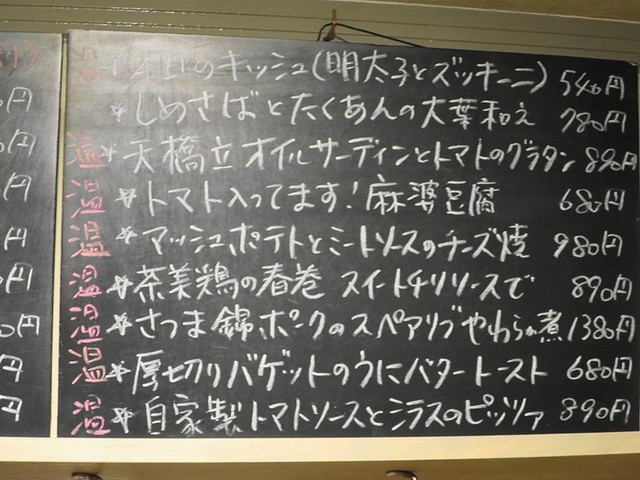 本日のキッシュ(明太子とズッキーニ) 540円
*しめさばとたくあんの大葉和え 780円
温*天橋立オイルサーディンとトマトのグラタン 890円
温*トマト入ってます!麻婆豆腐 680円
温*マッシュポテトとミートソースのチーズ焼 980円
温*茶美鶏の春巻 スイートチリソースで 890円
温*さつま錦ポークのスペアリブやわらか煮 1380円
温*厚切りバゲットのうにバタートースト 680円
温*自家製トマトソースとシラスのピッツァ 890円